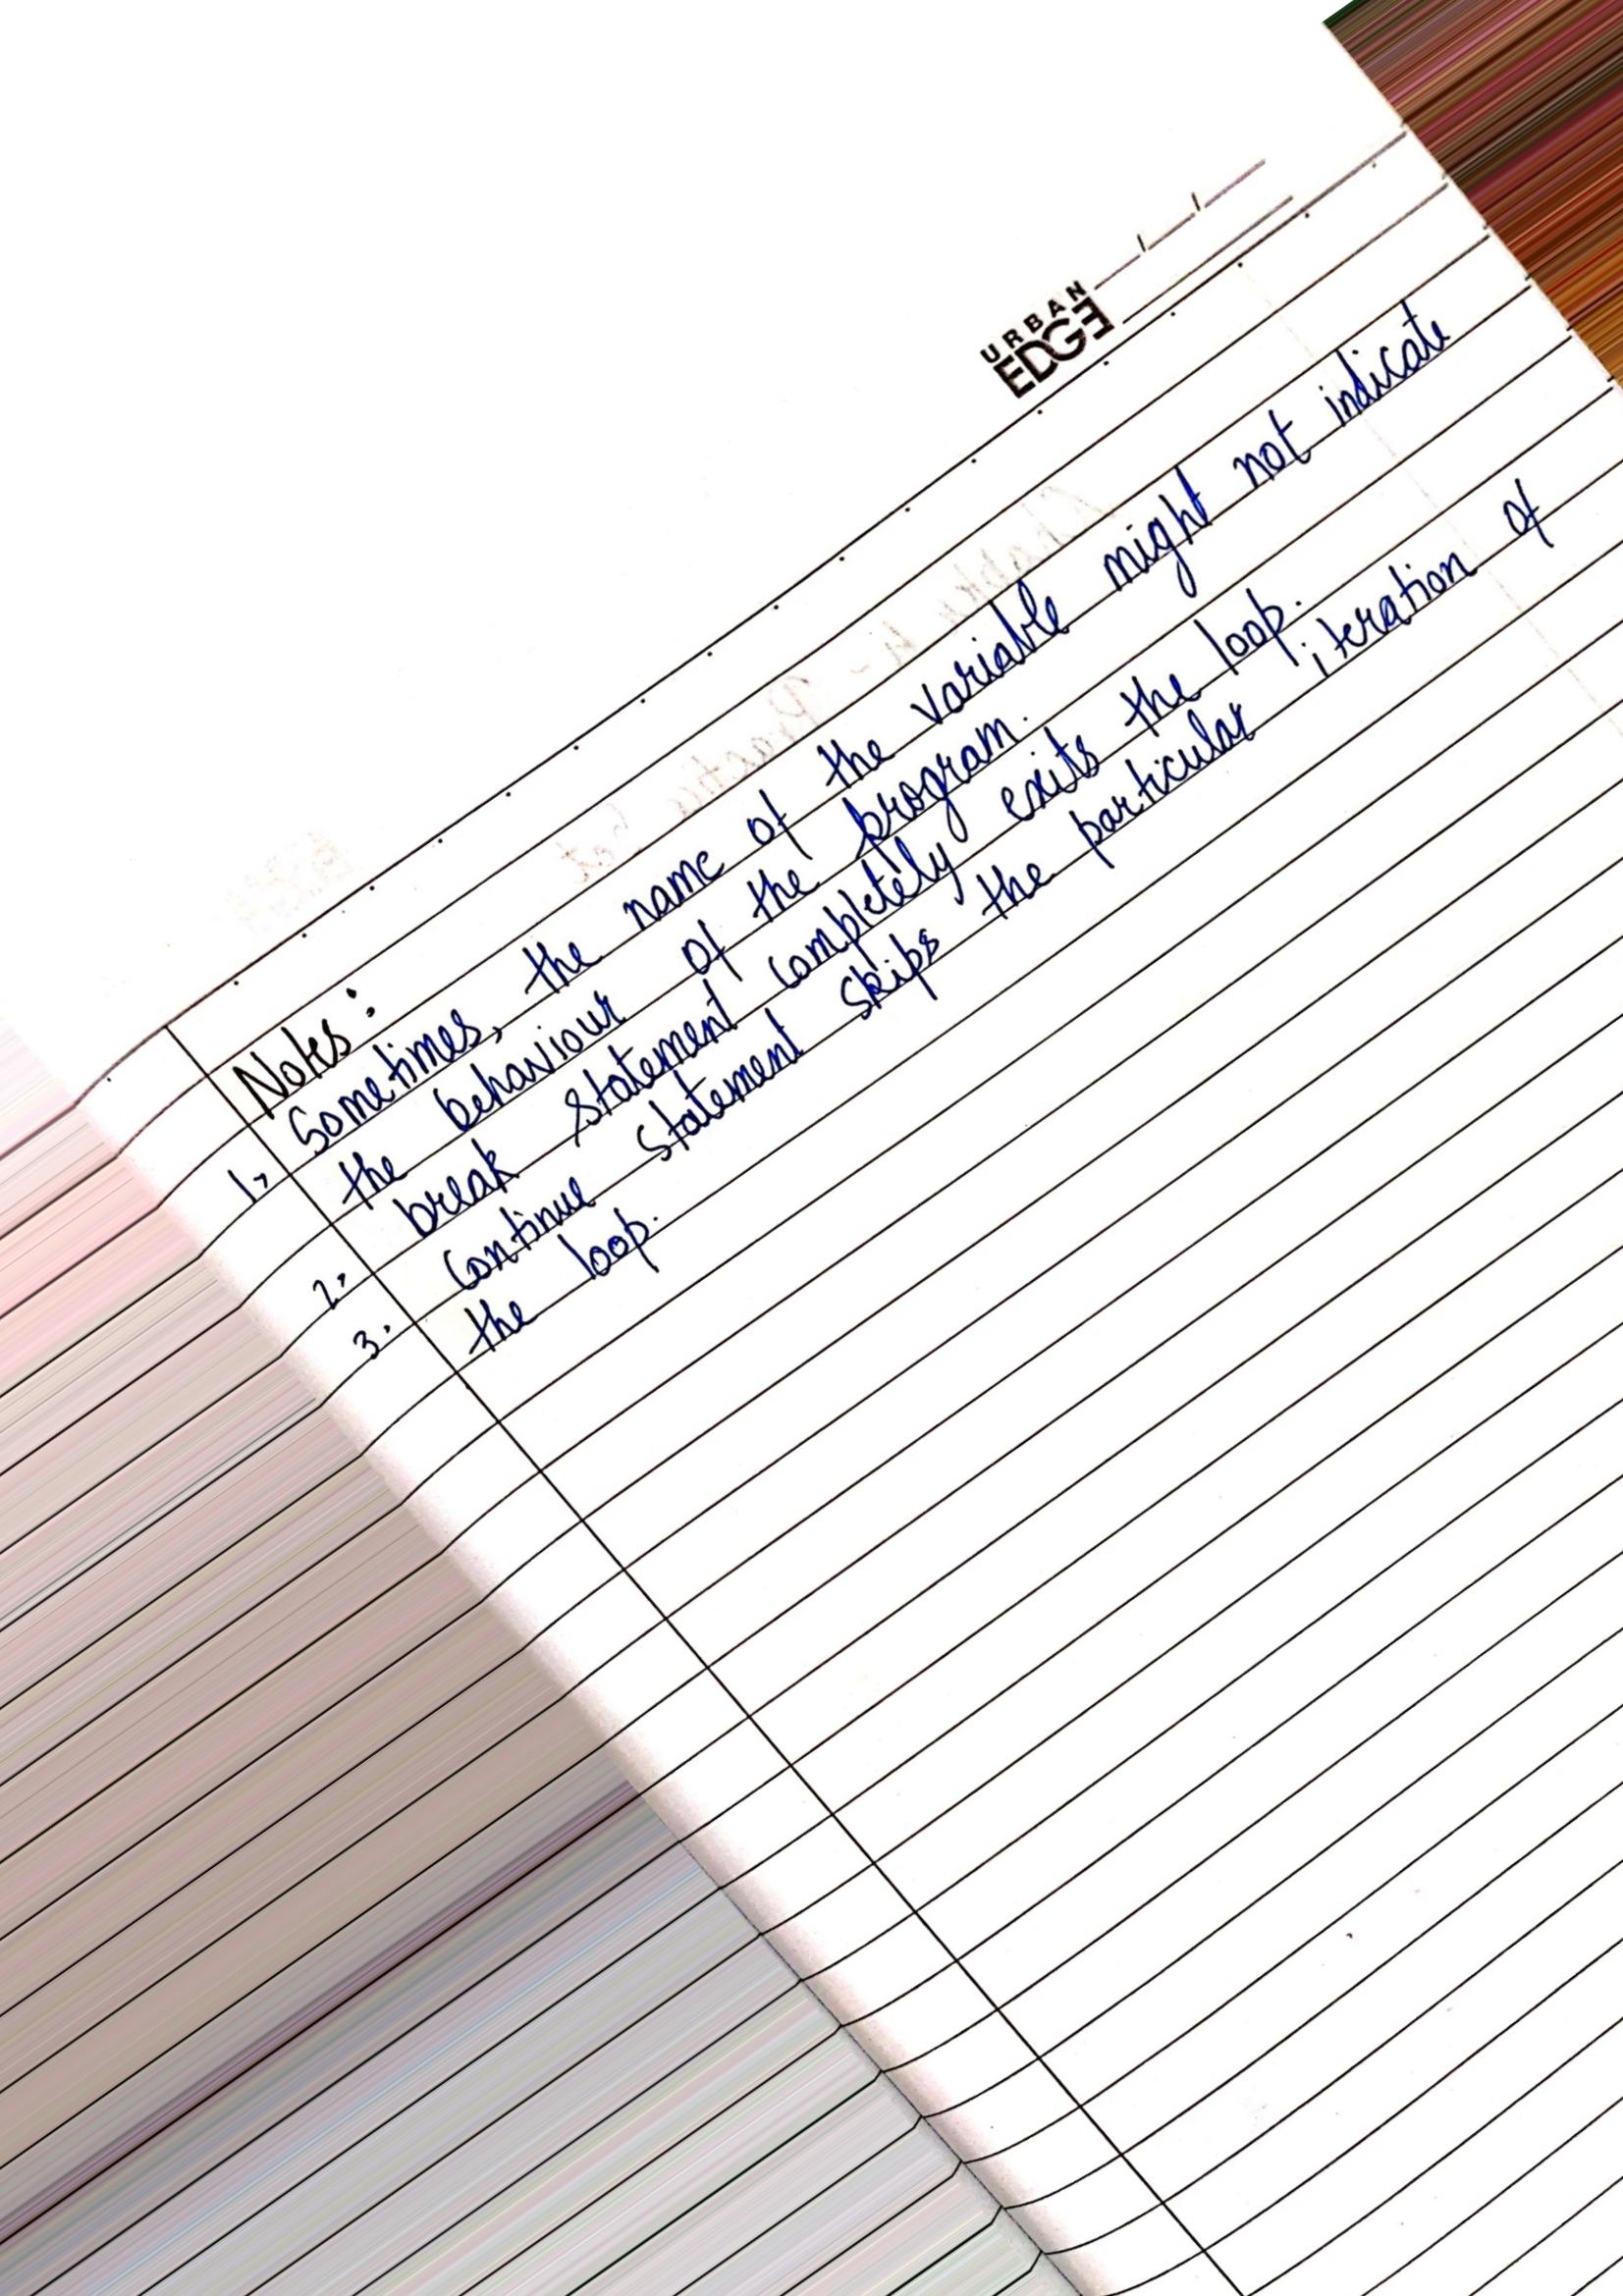 URBAN
EDGE
Notes:
1. Sometimes, the name of the variable might not indicate
the behaviour of the program.
2. break statement completely exits the loop.
3. Continue statement skips the particular iteration of
the loop.